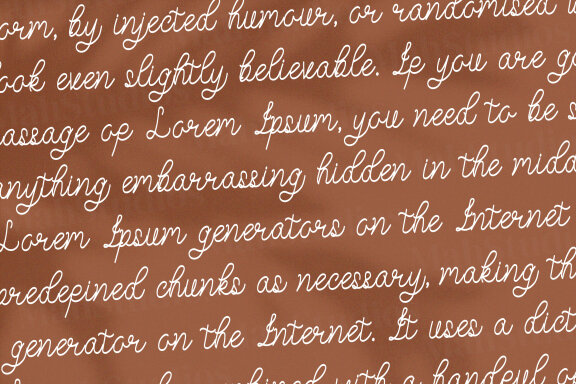 orm, by injected humour, or randomised w
look even slightly believable. If you are go
passage of Lorem Ipsum, you need to be s
anything embarrassing hidden in the midd
Lorem Ipsum generators on the Internet
predefined chunks as necessary, making th
generator on the Internet. It uses a dict
combined with a handful of